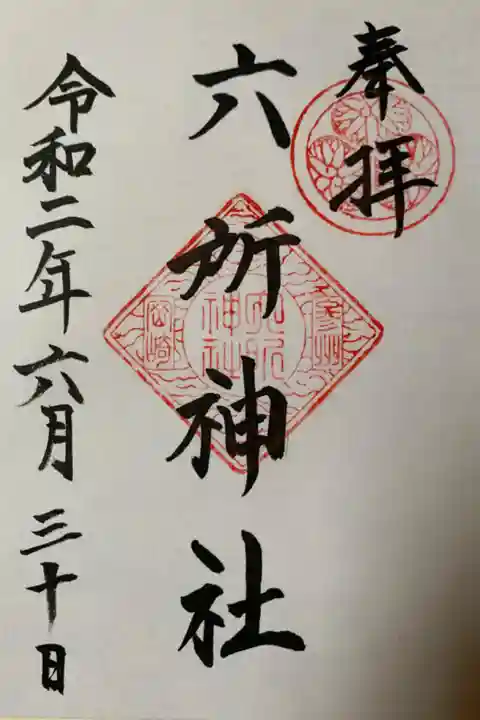 奉拝
六所神社
令和二年六月三十日
参州
六所神社
岡崎